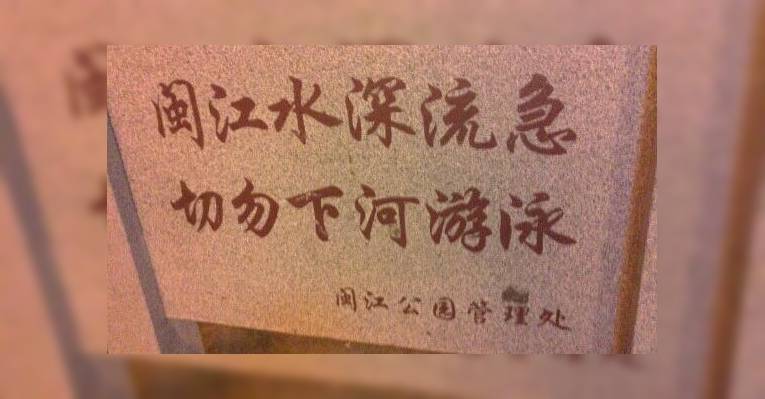 闽江水深流急
切勿下河游泳
闽江公园管理处